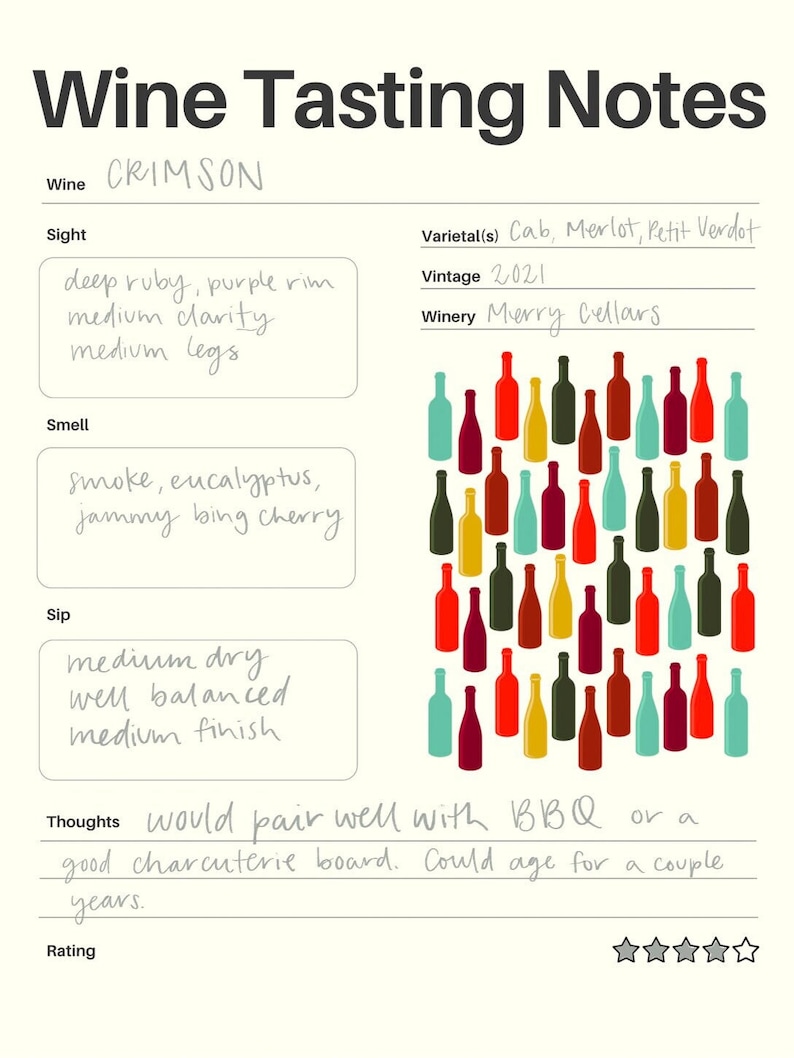 Wine Tasting Notes
Wine CRIMSON
Sight
deep ruby, purple rim
medium clarity
medium legs
Varietal(s) Cab, Merlot, Petit Verdot
Vintage 2021
Winery Merry Cellars
Smell
smoke, eucalyptus,
jammy bing cherry
Sip
medium dry
well balanced
medium finish
Thoughts would pair well with BBQ or a
good charcuterie board. Could age for a couple
years.
Rating